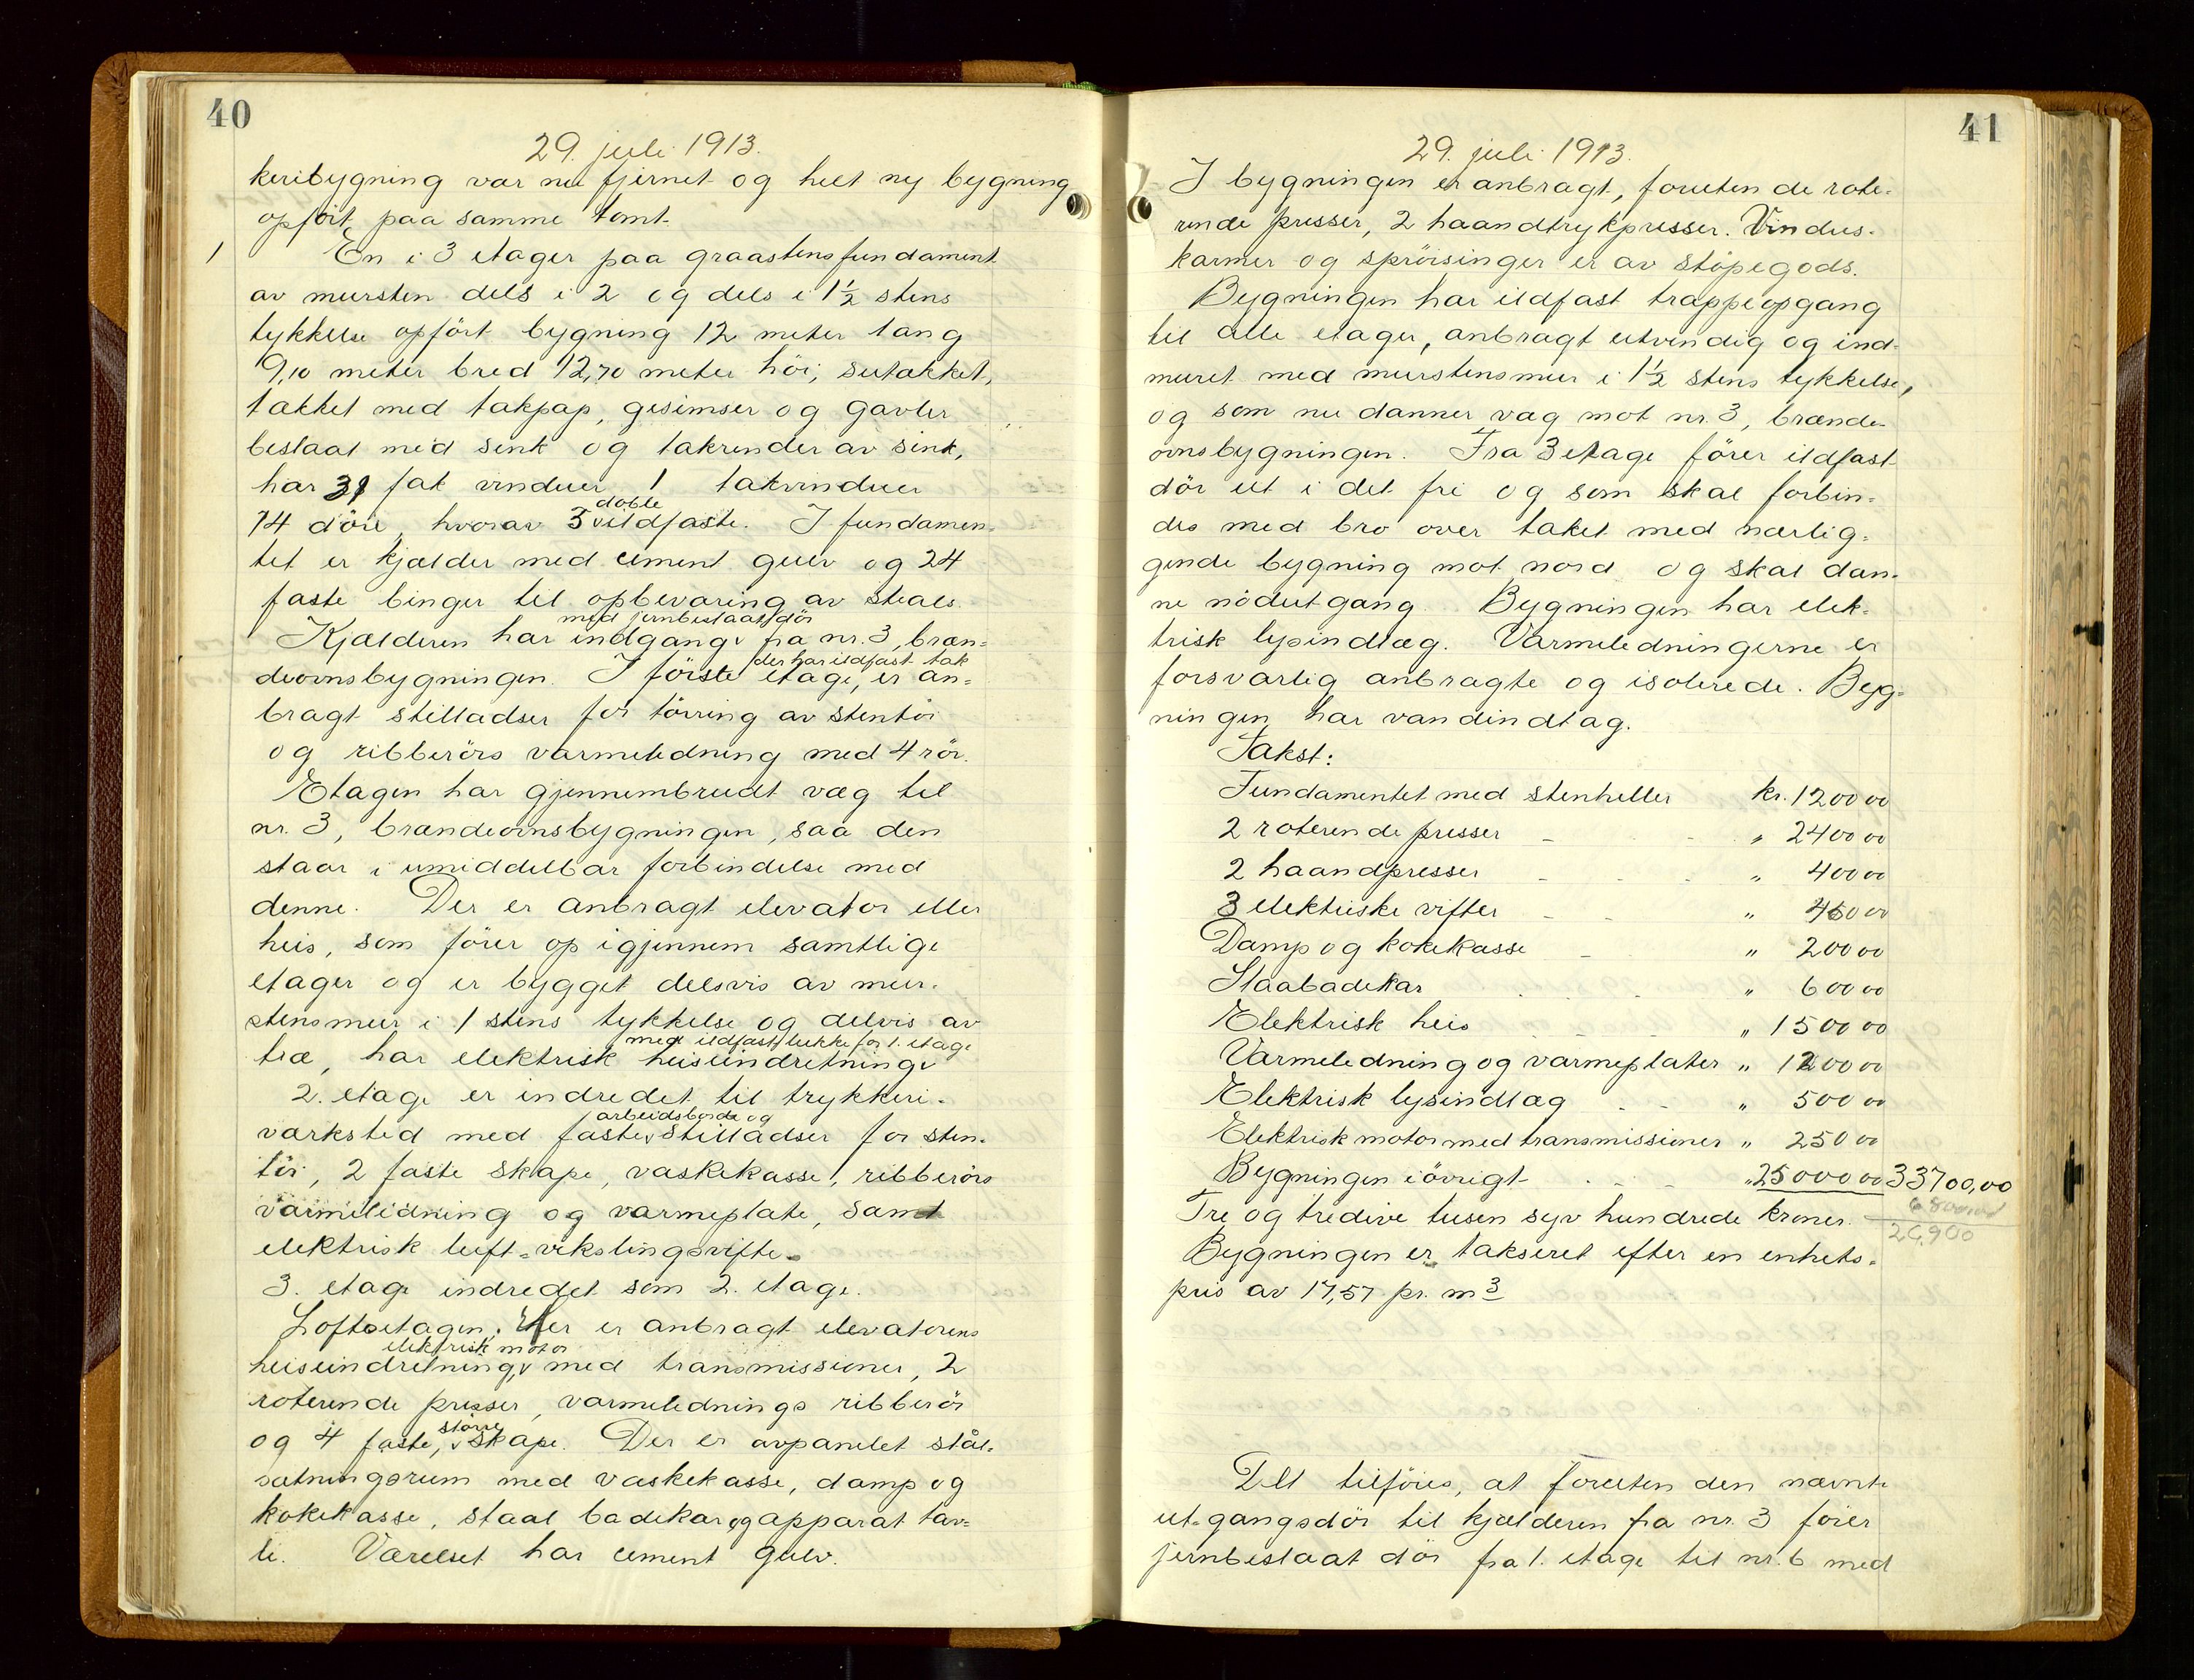 40
29. juli 1913.
keribygning var nu fjernet og helt ny bygning
opført paa samme tomt.
1 En i 3 etager paa graastensfundament
av mursten dels i 2 og dels i 1½ stens
tykkelse opført bygning 12 meter lang
9,10 meter bred 12,70 meter høi, sutakket,
takket med takpap, gesimser og gavler
beslaat med sink og takrender av sink,
har 31 fak vinduer, 1 takvinduer
14 döre, hvorav 3 doble ildfaste. I fundamen-
tet er kjælder med cement gulv og 24
faste binger til opbevaring av skals.
Kjælderen har indgang med jernbeslaat dör fra nr. 3, bræn-
deovnsbygningen. I förste etage, der har ildfast tak er an-
bragt stilladser for törring av stentöi
og ribberörs varmeledning med 4 rör.
Etagen har gjennembrudt væg til
nr. 3, brændeovnsbygningen, saa den
staar i umiddelbar forbindelse med
denne. Der er anbragt elevator eller
heis, som förer op igjennem samtlige
etager og er bygget delsvis av mur-
stensmur i 1 stens tykkelse og delvis av
træ, har elektrisk heiseindretning med ildfast lukke for 1. etage
2. etage er indredet til trykkeri-
værksted med faste arbeidsborde og stilladser for sten-
töi, 2 faste skape, vaskekasse, ribberörs
varmeledning og varmeplate, samt
elektrisk luft-vekslingsvifte.
3. etage indredet som 2. etage.
Loftsetagen. Her er anbragt elevatorens
heiseindretning, elektrisk motor med transmissioner, 2
roterende presser, varmelednings ribberör
og 4 faste, større skape. Der er avpanelet stål-
sætningsrum med vaskekasse, damp og
kokekasse, staal badekar og apparat tav-
le. Værelset har cement gulv.
41
29. juli 1913.
I bygningen er anbragt, foruten de rote-
rende presser, 2 haandtrykpresser. Vindus-
karmer og spröisinger er av stöpegods.
Bygningen har ildfast trappeopgang
til alle etager, anbragt utvendig og ind-
muret med murstensmur i 1½ stens tykkelse,
og som nu danner væg mot nr. 3, brænde-
ovnsbygningen. Fra 3 etage förer ildfast
dör ut i det fri og som skal forbin-
des med bro over taket med nærlig-
gende bygning mot nord og skal dan-
ne nödutgang. Bygningen har elek-
trisk lysindlæg. Varmeledningerne er
forsvarlig anbragte og isolerede. Byg-
ningen har vandindtag.
Takst:
Fundamentet med stenheller kr. 1200 00
2 roterende presser - - " 2400 00
2 haandpresser - - - " 400 00
3 elektriske vifter - - " 450 00
Damp og kokekasse - " 200 00
Staalbadekar - - - " 600 00
Elektrisk heis - - - " 1500 00
Varmeledning og varmeplater " 1200 00
Elektrisk lysindlæg - - " 500 00
Elektrisk motor med transmissioner " 250 00
Bygningen i övrigt - - - " 25000 00 33700,00
Tre og tredive tusen syv hundrede kroner.
26,900
Bygningen er takseret efter en enhets-
pris av 17,57 pr. m3
Det tilföies, at foruten den nævnte
ut-gangsdör til kjælderen fra nr. 3 förer
jernbeslaat dör fra 1. etage til nr. 6 med